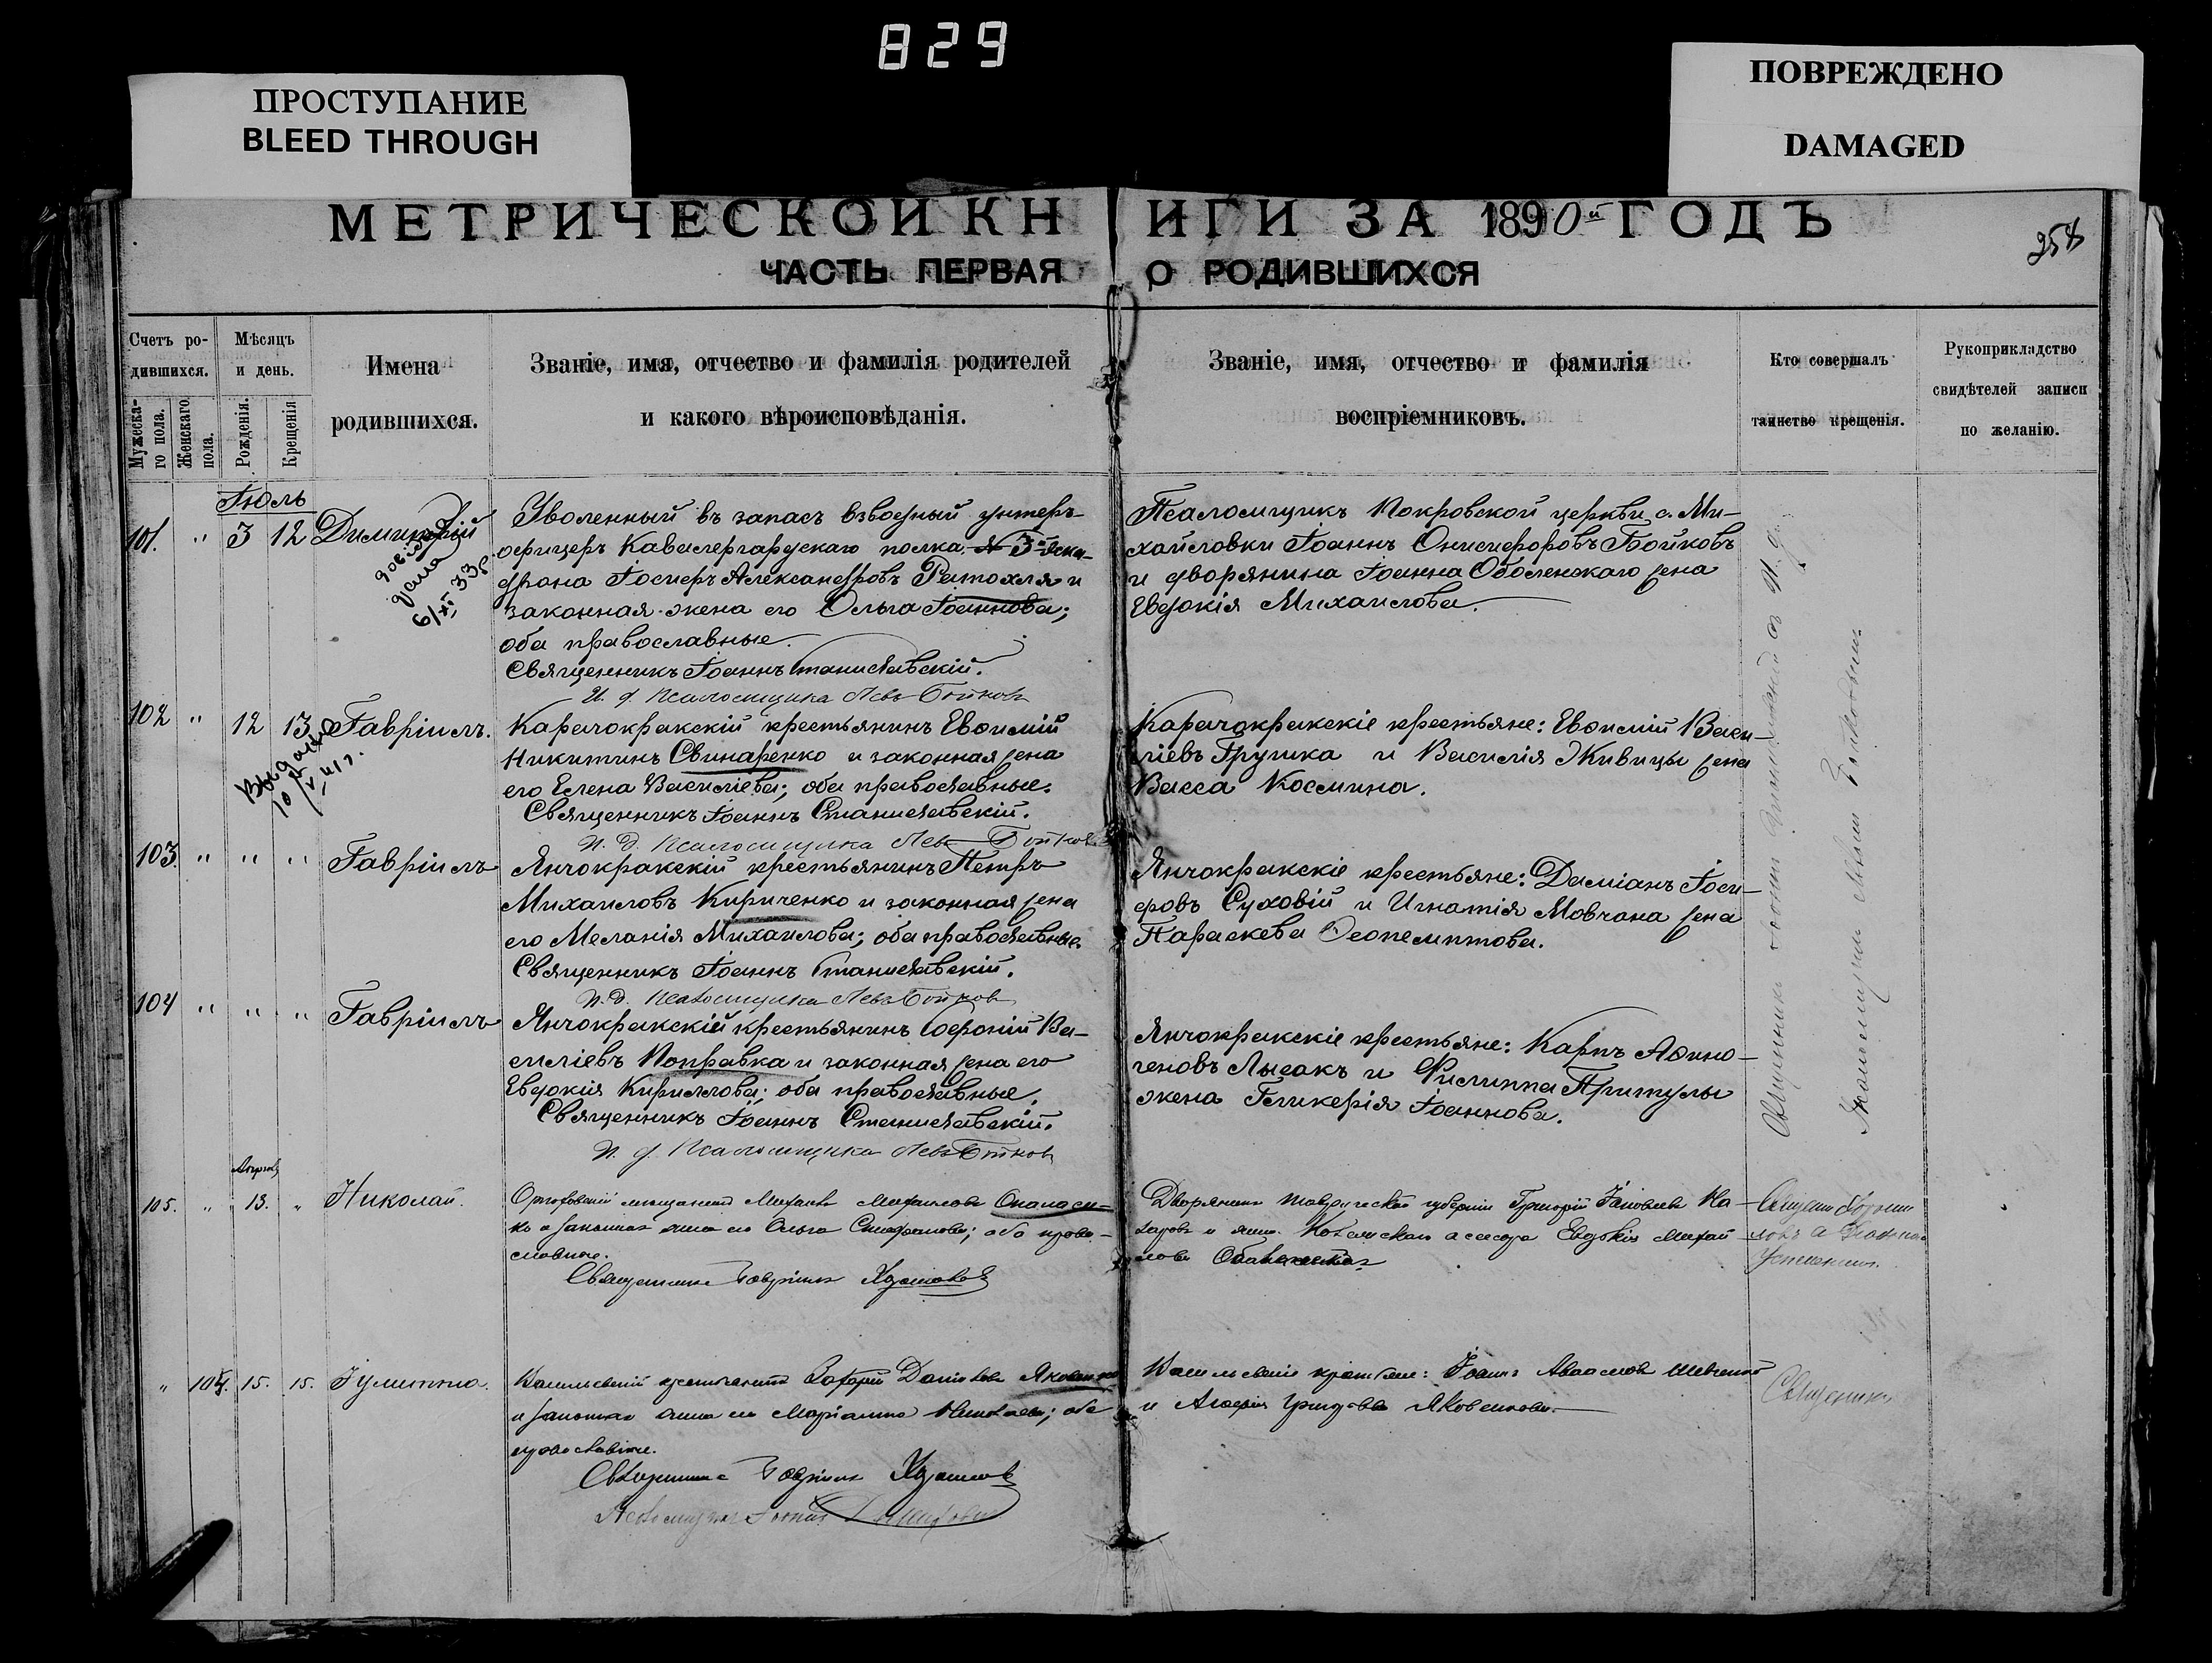 829
ПРОСТУПАНИЕ
BLEED THROUGH
ПОВРЕЖДЕНО
DAMAGED
МЕТРИЧЕСКОЙ КНИГИ ЗА 1890й ГОДЪ
ЧАСТЬ ПЕРВАЯ О РОДИВШИХСЯ
Счетъ ро-
дившихся.
Мужеска-
го пола.
Женскаго
пола.
Мѣсяцъ
и день.
Рожденія.
Крещенія
Имена
родившихся.
Званіе, имя, отчество и фамилія родителей
и какого вѣроисповѣданія.
Званіе, имя, отчество и фамилія
воспріемниковъ.
Кто совершалъ
таинство крещенія.
Рукоприкладство
свидѣтелей записи
по желанію.
Іюль
101. " 3 12 Димитрій
6/XI 33
Уволенный въ запасъ взводный унтеръ-
офицеръ Кавалергардскаго полка, 3го эска-
дрона Іосифъ Александровъ и
законная жена его Ольга Іоаннова;
оба православные.
Священникъ Іоаннъ Станиславскій.
И. д. Псаломщика Левъ Бойковъ
Псаломщикъ Покровской церкви с. Ми-
хайловки Іоаннъ Онисифоровъ Бойковъ
и дворянина Іоанна Оболенскаго жена
Евдокія Михаилова.
102 " 12 13 Гавріилъ.
Карачокракскій крестьянинъ Евѳимій
Никитинъ Свинаренко и законная жена
его Елена Василіева; оба православные.
Священникъ Іоаннъ Станиславскій.
И. д. Псаломщика Левъ Бойковъ
Карачокракскіе крестьяне: Евѳимій Васи-
ліевъ Грушка и Василія Живицы жена
Васса Космина.
103. " " " Гавріилъ
Янчокракскій крестьянинъ Петръ
Михаиловъ Кириченко и законная жена
его Меланія Михаилова; оба православные
Священникъ Іоаннъ Станиславскій.
И. д. Псаломщика Левъ Бойковъ
Янчокракскіе крестьяне: Даміанъ Іоси-
фовъ Суховій и Игнатія Мовчана жена
Параскева Ѳеопемптова.
104 " " " Гавріилъ
Янчокракскій крестьянинъ Софроній Ва-
силіевъ Поправка и законная жена его
Евдокія Кириллова; оба православные.
Священникъ Іоаннъ Станиславскій.
И. д. Псаломщика Левъ Бойковъ
Янчокракскіе крестьяне: Карпъ Аѳино-
геновъ Лысакъ и Филиппа Притулы
жена Гликерія Іоаннова.
105. " 13. " Николай.
Орѣховскій мѣщанинъ Михаилъ Михаиловъ
и законная жена его Ольга Стефанова; оба право-
славные.
Священникъ Гавріилъ
Дворянинъ Таврической губерніи Григорій Іаковлевъ На-
заровъ и жена Коллежскаго асесора Евдокія Михай-
лова
" 104. 15. 15. Іулитта.
Васильевскій крестьянинъ Захарій Даніиловъ
и законная жена его Маріанна Николаева; оба
православные.
Священникъ Гавріилъ
Васильевскіе крестьяне: Іоаннъ Шевченко
и Яковенкова.
Священникъ